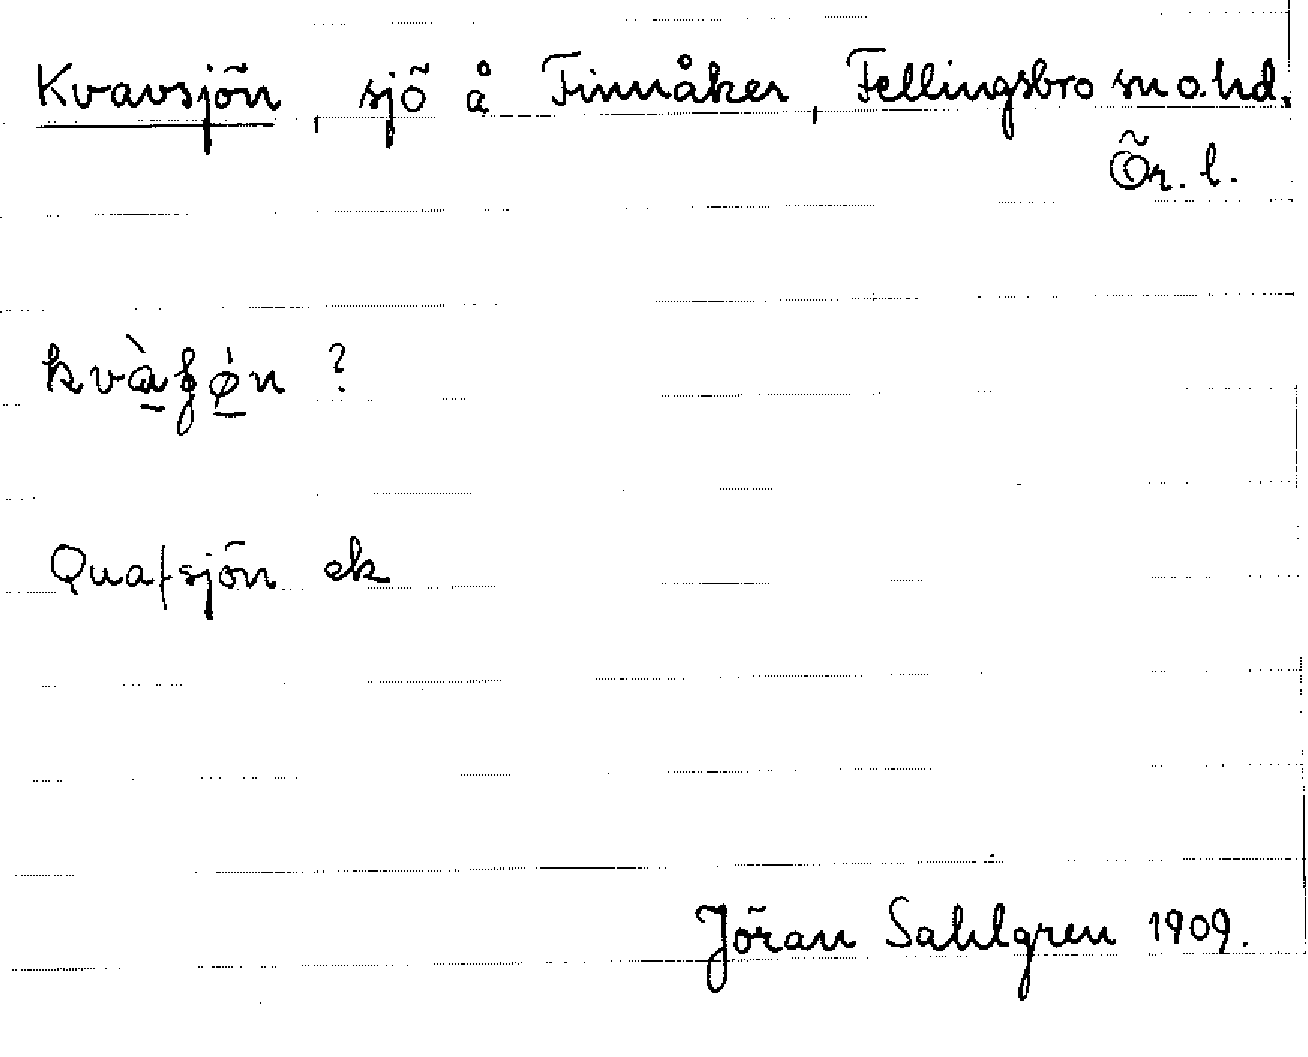 Kvavsjön, sjö å Finnåker, Fellingsbro sn o. hd.
Ör. l.
kvàʃǿn ?
Quafsjön ek
Jöran Sahlgren 1909.